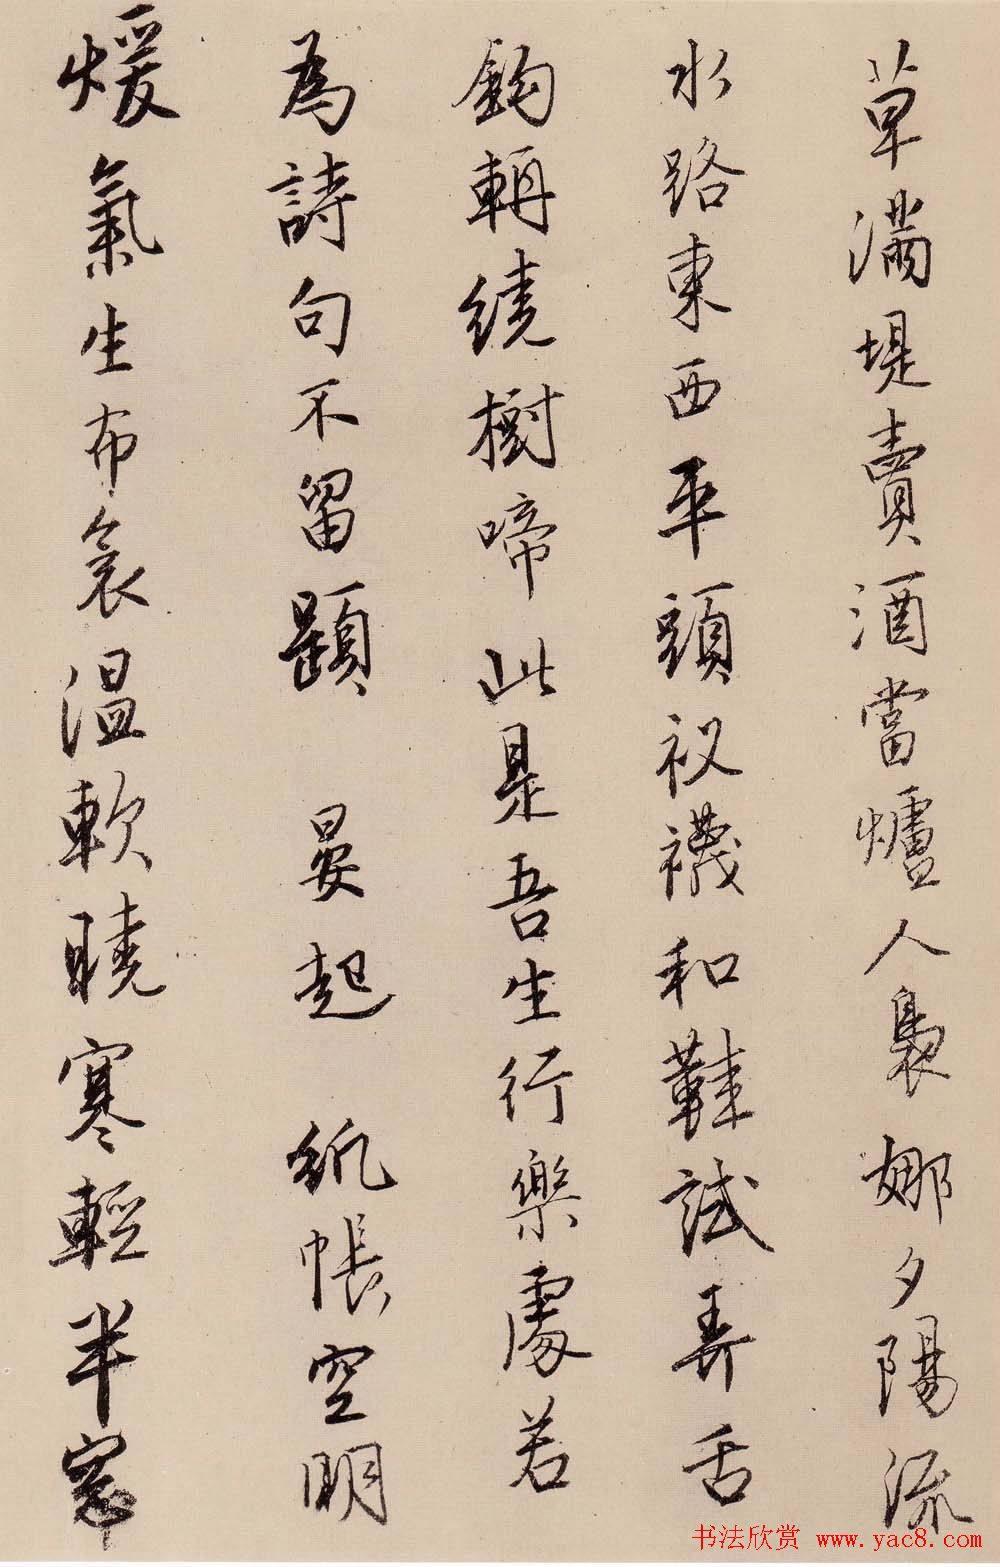 草滿堤賣酒當爐人裊娜夕陽流
水路東西平頭衩襪和鞵試弄舌
鉤輈繞樹啼此是吾生行樂處若
為詩句不留題 晏起 紙帳空明
煖氣生布衾温軟曉寒輕半窓
书法欣赏 www.yac8.com